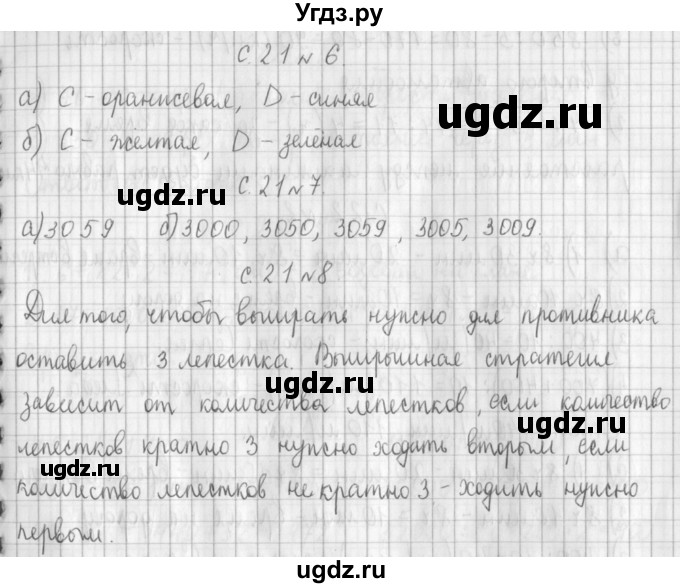 Угдз.ру
С. 21 № 6.
а) С - оранжевая, D - синяя
ugdz.ru
б) С - желтая, D - зелёная
ugdz.ru
С. 21 № 7.
а) 3059 б) 3000, 3050, 3059, 3005, 3009.
С. 21 № 8
Для того, чтобы выиграть нужно для противника
оставить 3 лепестка. Выигрышная стратегия
ugdz.ru
зависит от количества лепестков, если количество
ugdz.ru
лепестков кратно 3 нужно ходить вторым, если
ugdz.ru
количество лепестков не кратно 3 - ходить нужно
первым.
ugdz.ru